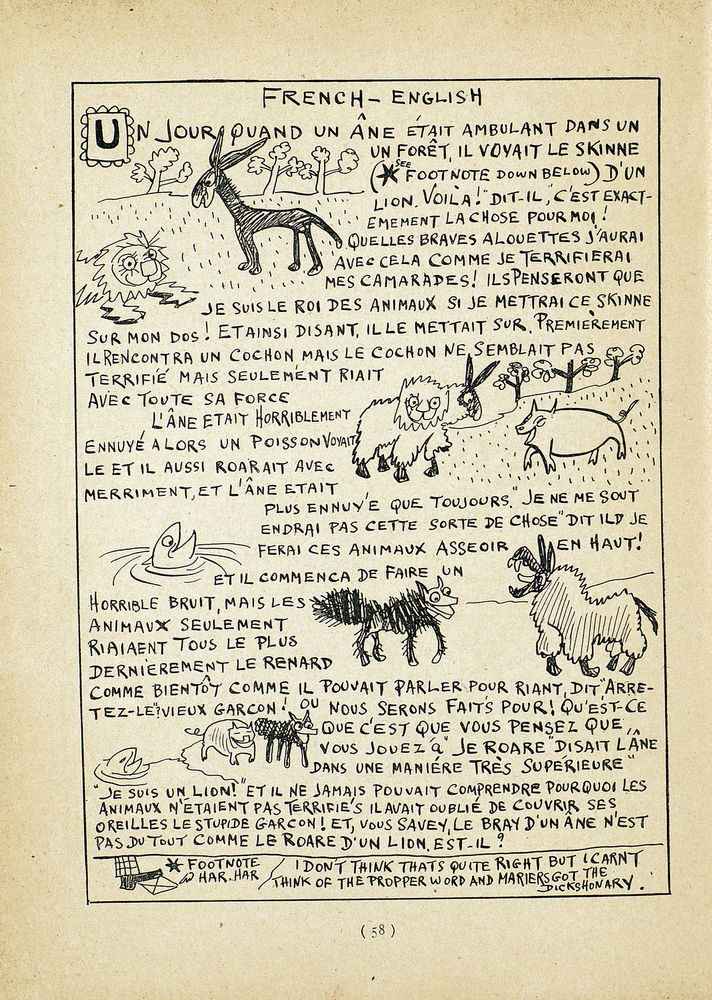 FRENCH - ENGLISH
UN JOUR QUAND UN ÂNE ÉTAIT AMBULANT DANS UN
UN FORÊT, IL VOYAIT LE SKINNE
(* SEE FOOTNOTE DOWN BELOW) D'UN
LION. VOILA!" DIT-IL, "C'EST EXACT-
EMEMENT LA CHOSE POUR MOI!
QUELLES BRAVES ALOUETTES J'AURAI
AVEC CELA COMME JE TERRIFIERAI
MES CAMARADES! ILS PENSERONT QUE
JE SUIS LE ROI DES ANIMAUX SI JE METTRAI CE SKINNE
SUR MON DOS! ET AINSI DISANT, IL LE METTAIT SUR. PREMIÈREMENT
IL RENCONTRA UN COCHON MAIS LE COCHON NE SEMBLAIT PAS
TERRIFIÉ MAIS SEULEMENT RIAIT
AVEC TOUTE SA FORCE
L'ÂNE ETAIT HORRIBLEMENT
ENNUYÉ ALORS UN POISSON VOYAIT
LE ET IL AUSSI ROARAIT AVEC
MERRIMENT, ET L'ÂNE ETAIT
PLUS ENNUYÉ QUE TOUJOURS. "JE NE ME SOUT
ENDRAI PAS CETTE SORTE DE CHOSE" DIT IL "JE
FERAI CES ANIMAUX ASSEOIR EN HAUT!
ET IL COMMENCA DE FAIRE UN
HORRIBLE BRUIT, MAIS LES
ANIMAUX SEULEMENT
RIAIAENT TOUS LE PLUS
DERNIÈREMENT LE RENARD
COMME BIENTÔT COMME IL POUVAIT PARLER POUR RIANT, DIT "ARRE-
TEZ-LE VIEUX GARCON! OU NOUS SERONS FAITS POUR! QU'EST-CE
QUE C'EST QUE VOUS PENSEZ QUE
VOUS JOUEZ À" "JE ROARE" DISAIT L'ÂNE
DANS UNE MANIÉRE TRÈS SUPERIEURE"
"JE SUIS UN LION!" ET IL NE JAMAIS POUVAIT COMPRENDRE POURQUOI LES
ANIMAUX N'ETAIENT PAS TERRIFIÉS IL AVAIT OUBLIÉ DE COUVRIR SES
OREILLES LE STUPIDE GARCON! ET, VOUS SAVEY, LE BRAY D'UN ÂNE N'EST
PAS DU TOUT COMME LE ROARE D'UN LION, EST-IL?
* FOOTNOTE
HAR. HAR
I DON'T THINK THATS QUITE RIGHT BUT I CARNT
THINK OF THE PROPPER WORD AND MARIERS GOT THE
DICKSHONARY.
( 58 )